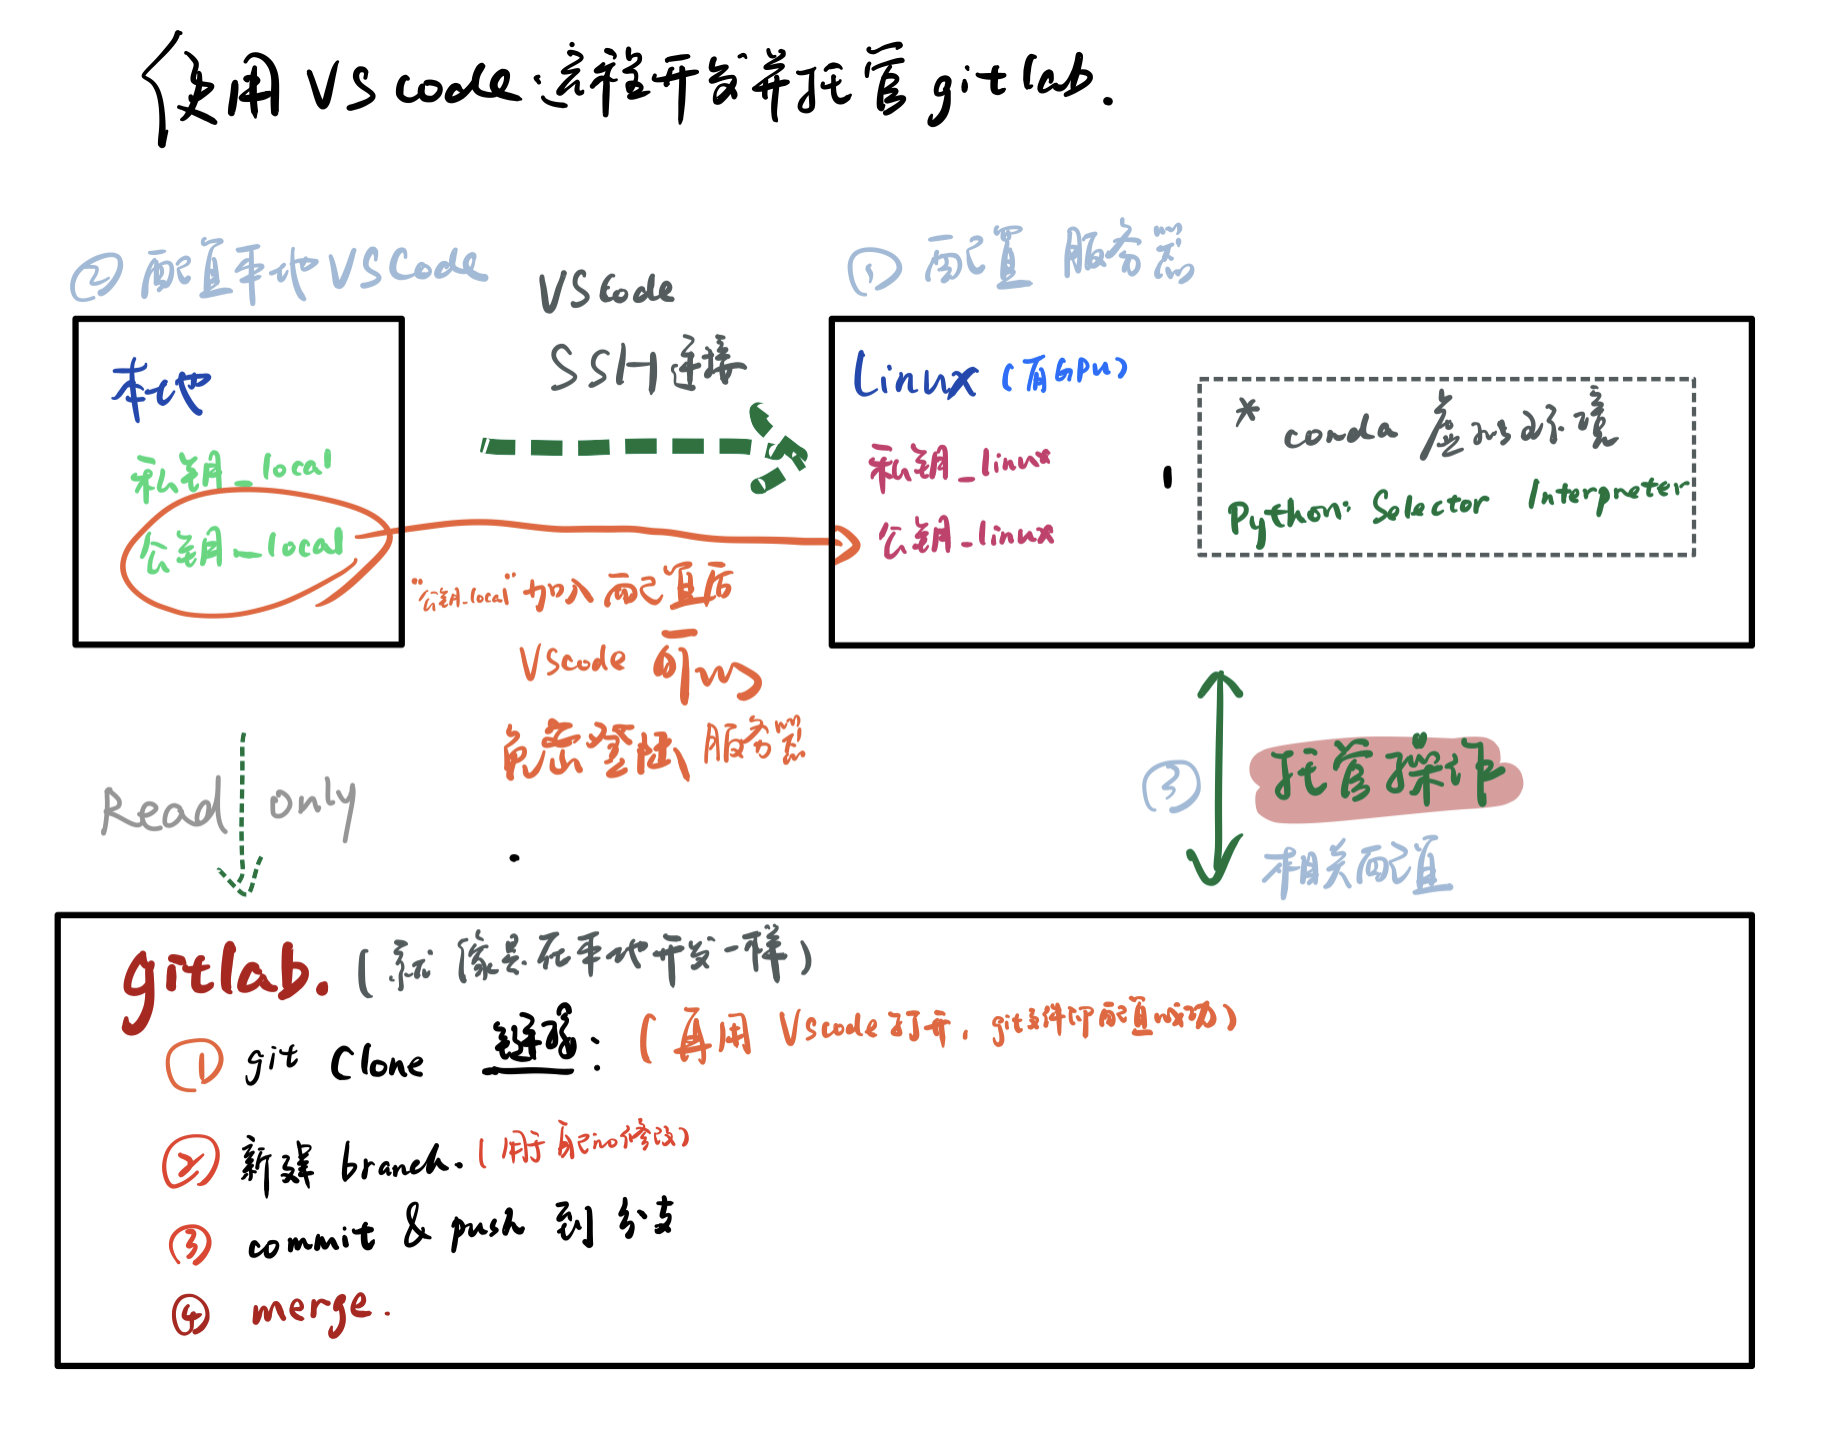 使用 VS code 远程开发并托管 gitlab.
② 配置本地 VSCode
VSCode
SSH 连接
① 配置 服务器
本地
私钥_local
公钥_local
Linux (有GPU)
私钥_linux
公钥_linux
* conda 虚拟环境
Python: Selector Interpreter
"公钥_local" 加入配置后
VScode 可以
免密登陆 服务器
Read only
③ 托管操作
相关配置
gitlab. (就像是在本地开发一样)
① git Clone 链接: (再用 VScode 打开, git文件即配置成功)
② 新建 branch. (用于自己的修改)
③ commit & push 到 分支
④ merge.